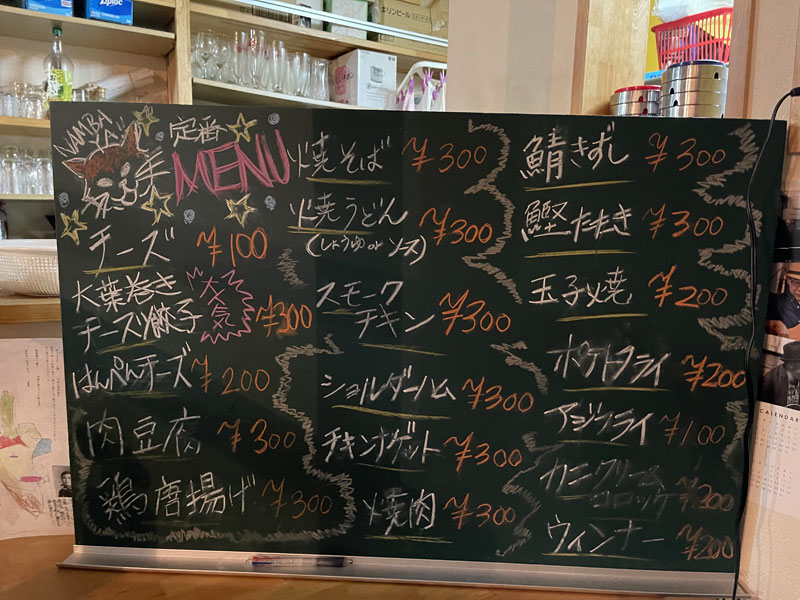 Ziploc
Ziploc
キリンビール
NAMBA
YA!!
定番
MENU
チーズ ¥100
大葉巻き
チーズ餃子 大人気 ¥300
はんぺんチーズ ¥200
肉豆腐 ¥300
鶏唐揚げ ¥300
焼そば ¥300
焼うどん
(しょうゆ or ソース) ¥300
スモーク
チキン ¥300
ショルダーハム ¥300
チキンナゲット ¥300
焼肉 ¥300
鯖きずし ¥300
鰹たたき ¥300
玉子焼 ¥200
ポテトフライ ¥200
アジフライ ¥100
カニクリーム
コロッケ ¥200
ウィンナー ¥200
CALENDAR